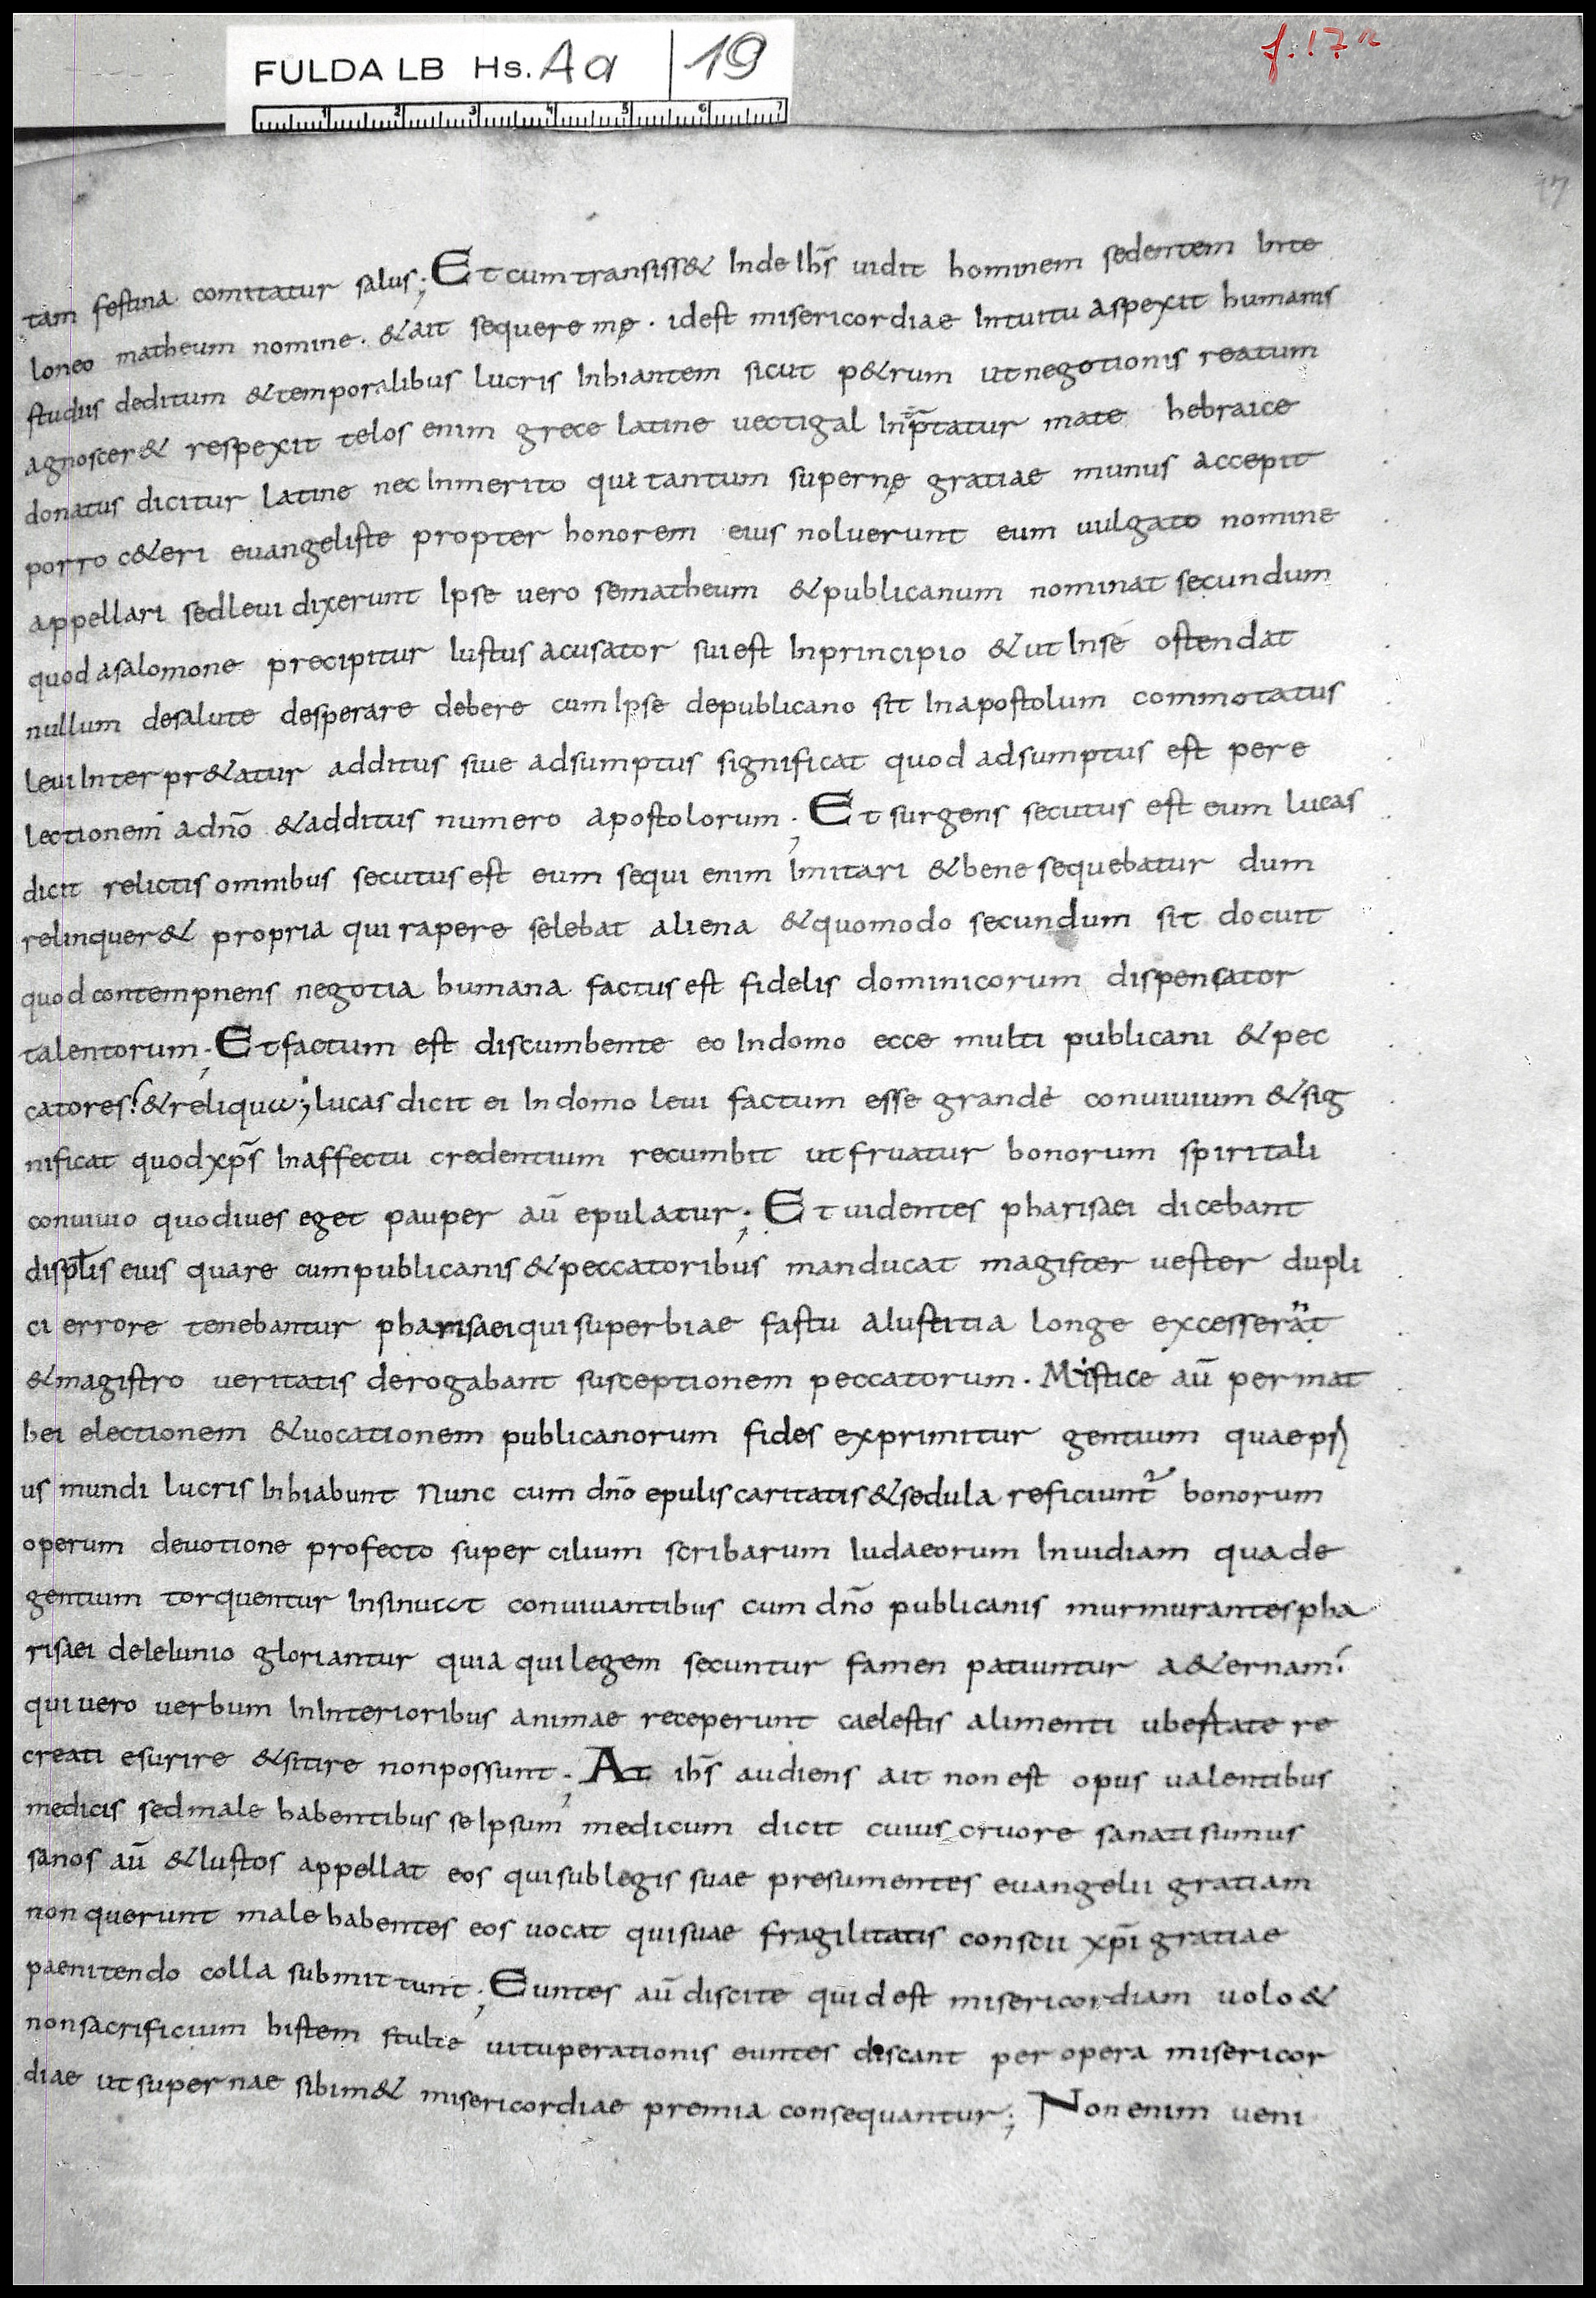 FULDA LB Hs. Aa 19
1 2 3 4 5 6 7
f. 17r
17
tam festina comitatur salus; Et cum transiss& Inde Ihs̄ uidit hominem sedentem Inte
loneo matheum nomine. &ait sequere mę. idest misericordiae Intuitu aspexit humanis
studiis deditum &temporalibus lucris Inhiantem sicut p&rum ut negotionis reatum
agnoscer& respexit telos enim grece latine uectigal Inp̄tatur mate hebraice
donatus dicitur latine nec Inmerito qui tantum supernę gratiae munus accepit
porro c&eri euangeliste propter honorem eius noluerunt eum uulgato nomine
appellari sed leui dixerunt Ipse uero se matheum &publicanum nominat secundum
quod a salomone precipitur Iustus acusator sui est Inprincipio &ut Inse ostendat
nullum desalute desperare debere cum Ipse depublicano sit Inapostolum commotatus
leui Interpr&atur additus siue adsumptus significat quod adsumptus est per e
lectionem adnō &additus numero apostolorum; Et surgens secutus est eum lucas
dicit relictis omnibus secutus est eum sequi enim Imitari &bene sequebatur dum
relinquer& propria qui rapere selebat aliena &quomodo secundum sit docuit
quod contempnens negotia humana factus est fidelis dominicorum dispensator
talentorum; Et factum est discumbente eo Indomo ecce multi publicani &pec
catores &reliqua; lucas dicit ei Indomo leui factum esse grande conuiuium &sig
nificat quod xps̄ Inaffectu credentium recumbit ut fruatur bonorum spiritali
conuiuio quo diues eget pauper aū epulatur; Et uidentes pharisaei dicebant
discipl̄is eius quare cum publicanis &peccatoribus manducat magister uester dupli
ci errore tenebantur pharisaei qui superbiae fastu aIustitia longe excesserant
&magistro ueritatis derogabant susceptionem peccatorum. Mistice aū per mat
hei electionem &uocationem publicanorum fides exprimitur gentium quae pri
us mundi lucris Inhiabunt Nunc cum dnō epulis caritatis &sedula reficiunt bonorum
operum deuotione profecto super cilium scribarum Iudaeorum Inuidiam qua de
gentium torquentur Insinuat conuiuantibus cum dnō publicanis murmurantes pha
risaei deIeIunio gloriantur quia qui legem secuntur famen patiuntur a&ernam
qui uero uerbum InInterioribus animae receperunt caelestis alimenti ubertate re
creati esurire &sitire non possunt; At ihs̄ audiens ait non est opus ualentibus
medicis sed male habentibus seIpsum medicum dicit cuius cruore sanati sumus
sanos aū &Iustos appellat eos qui sub legis suae presumentes euangelii gratiam
non querunt male habentes eos uocat qui suae fragilitatis conscii xpī gratiae
paenitendo colla submittunt; Euntes aū discite quid est misericordiam uolo &
non sacrificium histem stulte uituperationis euntes discant per opera misericor
diae ut supernae sibim& misericordiae premia consequantur; Non enim ueni